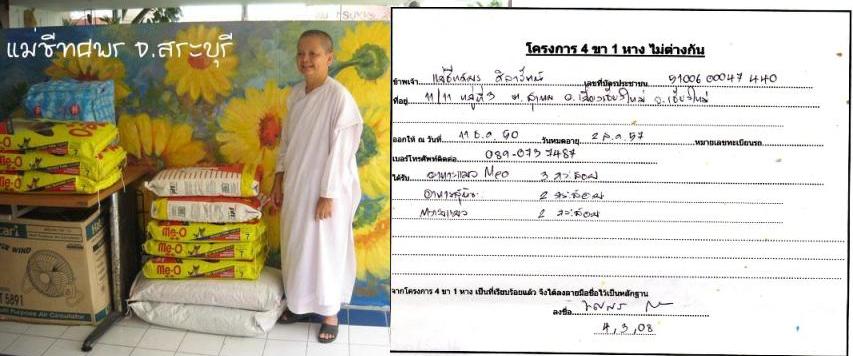 แม่ชีทศพร จ.สระบุรี
Me-O
Me-O
Me-O
Me-O
Me-O
WIND
5891
Multi Purpose Air Circulator
โครงการ 4 ขา 1 หาง ไม่ต่างกัน
ข้าพเจ้า แม่ชีทศพร เลขที่บัตรประชาชน
ที่อยู่ 11/11 หมู่ที่ จ.เชียงใหม่
ออกให้ ณ วันที่ 11 ธ.ค. 50 วันหมดอายุ 2 ส.ค. 57 หมายเลขทะเบียนรถ
เบอร์โทรศัพท์ติดต่อ 089-073 7487
ได้รับ อาหารแมว Meo 3 กระสอบ
อาหารสุนัข 2 กระสอบ
2 กระสอบ
จากโครงการ 4 ขา 1 หาง เป็นที่เรียบร้อยแล้ว จึงได้ลงลายมือชื่อไว้เป็นหลักฐาน
ลงชื่อ ทศพร
4, 3, 08